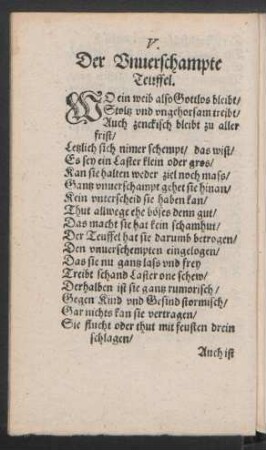 V.
Der Vnuerschampte
Teuffel.
WO ein weib also Gottlos bleibt/
Stoltz vnd vngehorsam treibt/
Auch zenckisch bleibt zu aller
frist/
Letzlich sich nimer schempt/ das wist/
Es sey ein Laster klein oder gros/
Kan sie halten weder ziel noch mass/
Gantz vnuerschampt gehet sie hinan/
Kein vnterscheid sie haben kan/
Thut allwege ehe böses denn gut/
Das macht sie hat kein schamhut/
Der Teuffel hat sie darumb betrogen/
Den vnuerschempten eingelogen/
Das sie nu gantz lass vnd frey
Treibt schand Laster one schew/
Derhalben ist sie gantz rumorisch/
Gegen Kind vnd Gesind stormisch/
Gar nichts kan sie vertragen/
Sie flucht oder thut mit feusten drein
schlagen/
Auch ist